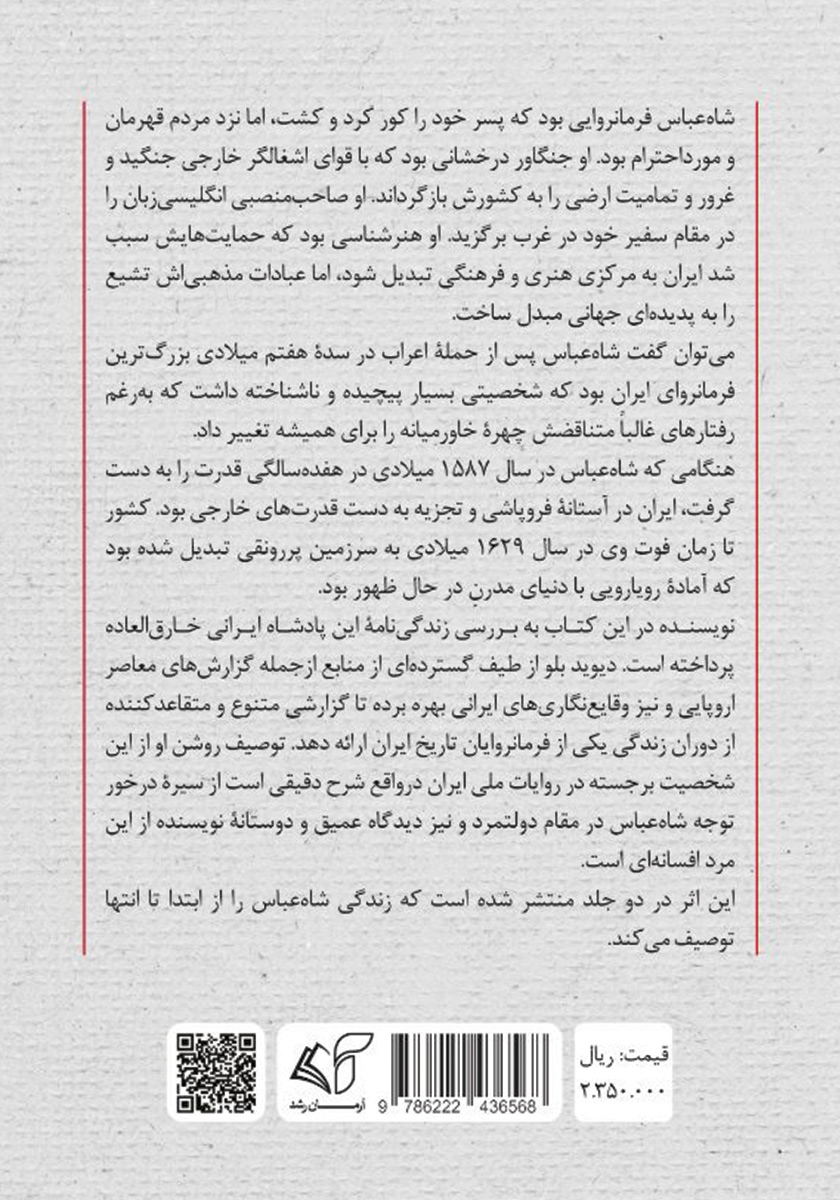 شاه‌عباس فرمانروایی بود که پسر خود را کور کرد و کشت، اما نزد مردم قهرمان
و مورداحترام بود. او جنگاور درخشانی بود که با قوای اشغالگر خارجی جنگید و
غرور و تمامیت ارضی را به کشورش بازگرداند. او صاحب‌منصبی انگلیسی‌زبان را
در مقام سفیر خود در غرب برگزید. او هنرشناسی بود که حمایت‌هایش سبب
شد ایران به مرکزی هنری و فرهنگی تبدیل شود، اما عبادات مذهبی‌اش تشیع
را به پدیده‌ای جهانی مبدل ساخت.
می‌توان گفت شاه‌عباس پس از حملهٔ اعراب در سدهٔ هفتم میلادی بزرگ‌ترین
فرمانروای ایران بود که شخصیتی بسیار پیچیده و ناشناخته داشت که به‌رغم
رفتارهای غالباً متناقضش چهرهٔ خاورمیانه را برای همیشه تغییر داد.
هنگامی که شاه‌عباس در سال ۱۵۸۷ میلادی در هفده‌سالگی قدرت را به دست
گرفت، ایران در آستانهٔ فروپاشی و تجزیه به دست قدرت‌های خارجی بود. کشور
تا زمان فوت وی در سال ۱۶۲۹ میلادی به سرزمین پررونقی تبدیل شده بود
که آمادهٔ رویارویی با دنیای مدرنِ در حال ظهور بود.
نویسنده در این کتاب به بررسی زندگی‌نامهٔ این پادشاه ایرانی خارق‌العاده
پرداخته است. دیوید بلو از طیف گسترده‌ای از منابع ازجمله گزارش‌های معاصر
اروپایی و نیز وقایع‌نگاری‌های ایرانی بهره برده تا گزارشی متنوع و متقاعدکننده
از دوران زندگی یکی از فرمانروایان تاریخ ایران ارائه دهد. توصیف روشن او از این
شخصیت برجسته در روایات ملی ایران درواقع شرح دقیقی است از سیرهٔ درخور
توجه شاه‌عباس در مقام دولتمرد و نیز دیدگاه عمیق و دوستانهٔ نویسنده از این
مرد افسانه‌ای است.
این اثر در دو جلد منتشر شده است که زندگی شاه‌عباس را از ابتدا تا انتها
توصیف می‌کند.
قیمت: ریال
۲.۳۵۰.۰۰۰
9 786222 436568
آرمان رشد